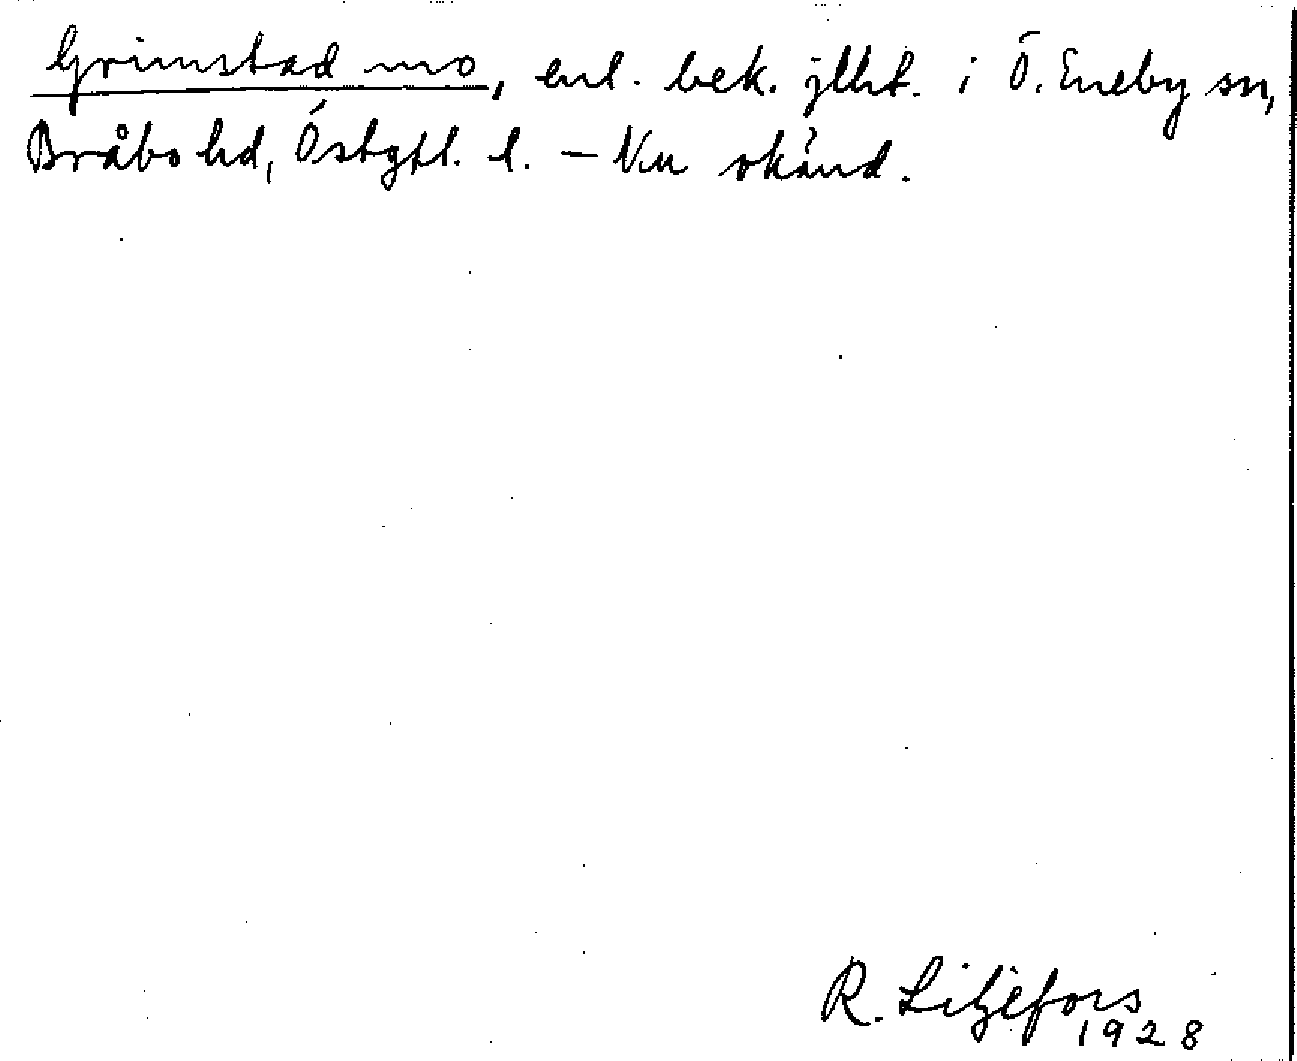 Grimstad mo, enl. bek. jllt. i Ö. Eneby sn,
Bråbo hd, Östgtl. l. – Nu okänd.
R. Liljefors
1928